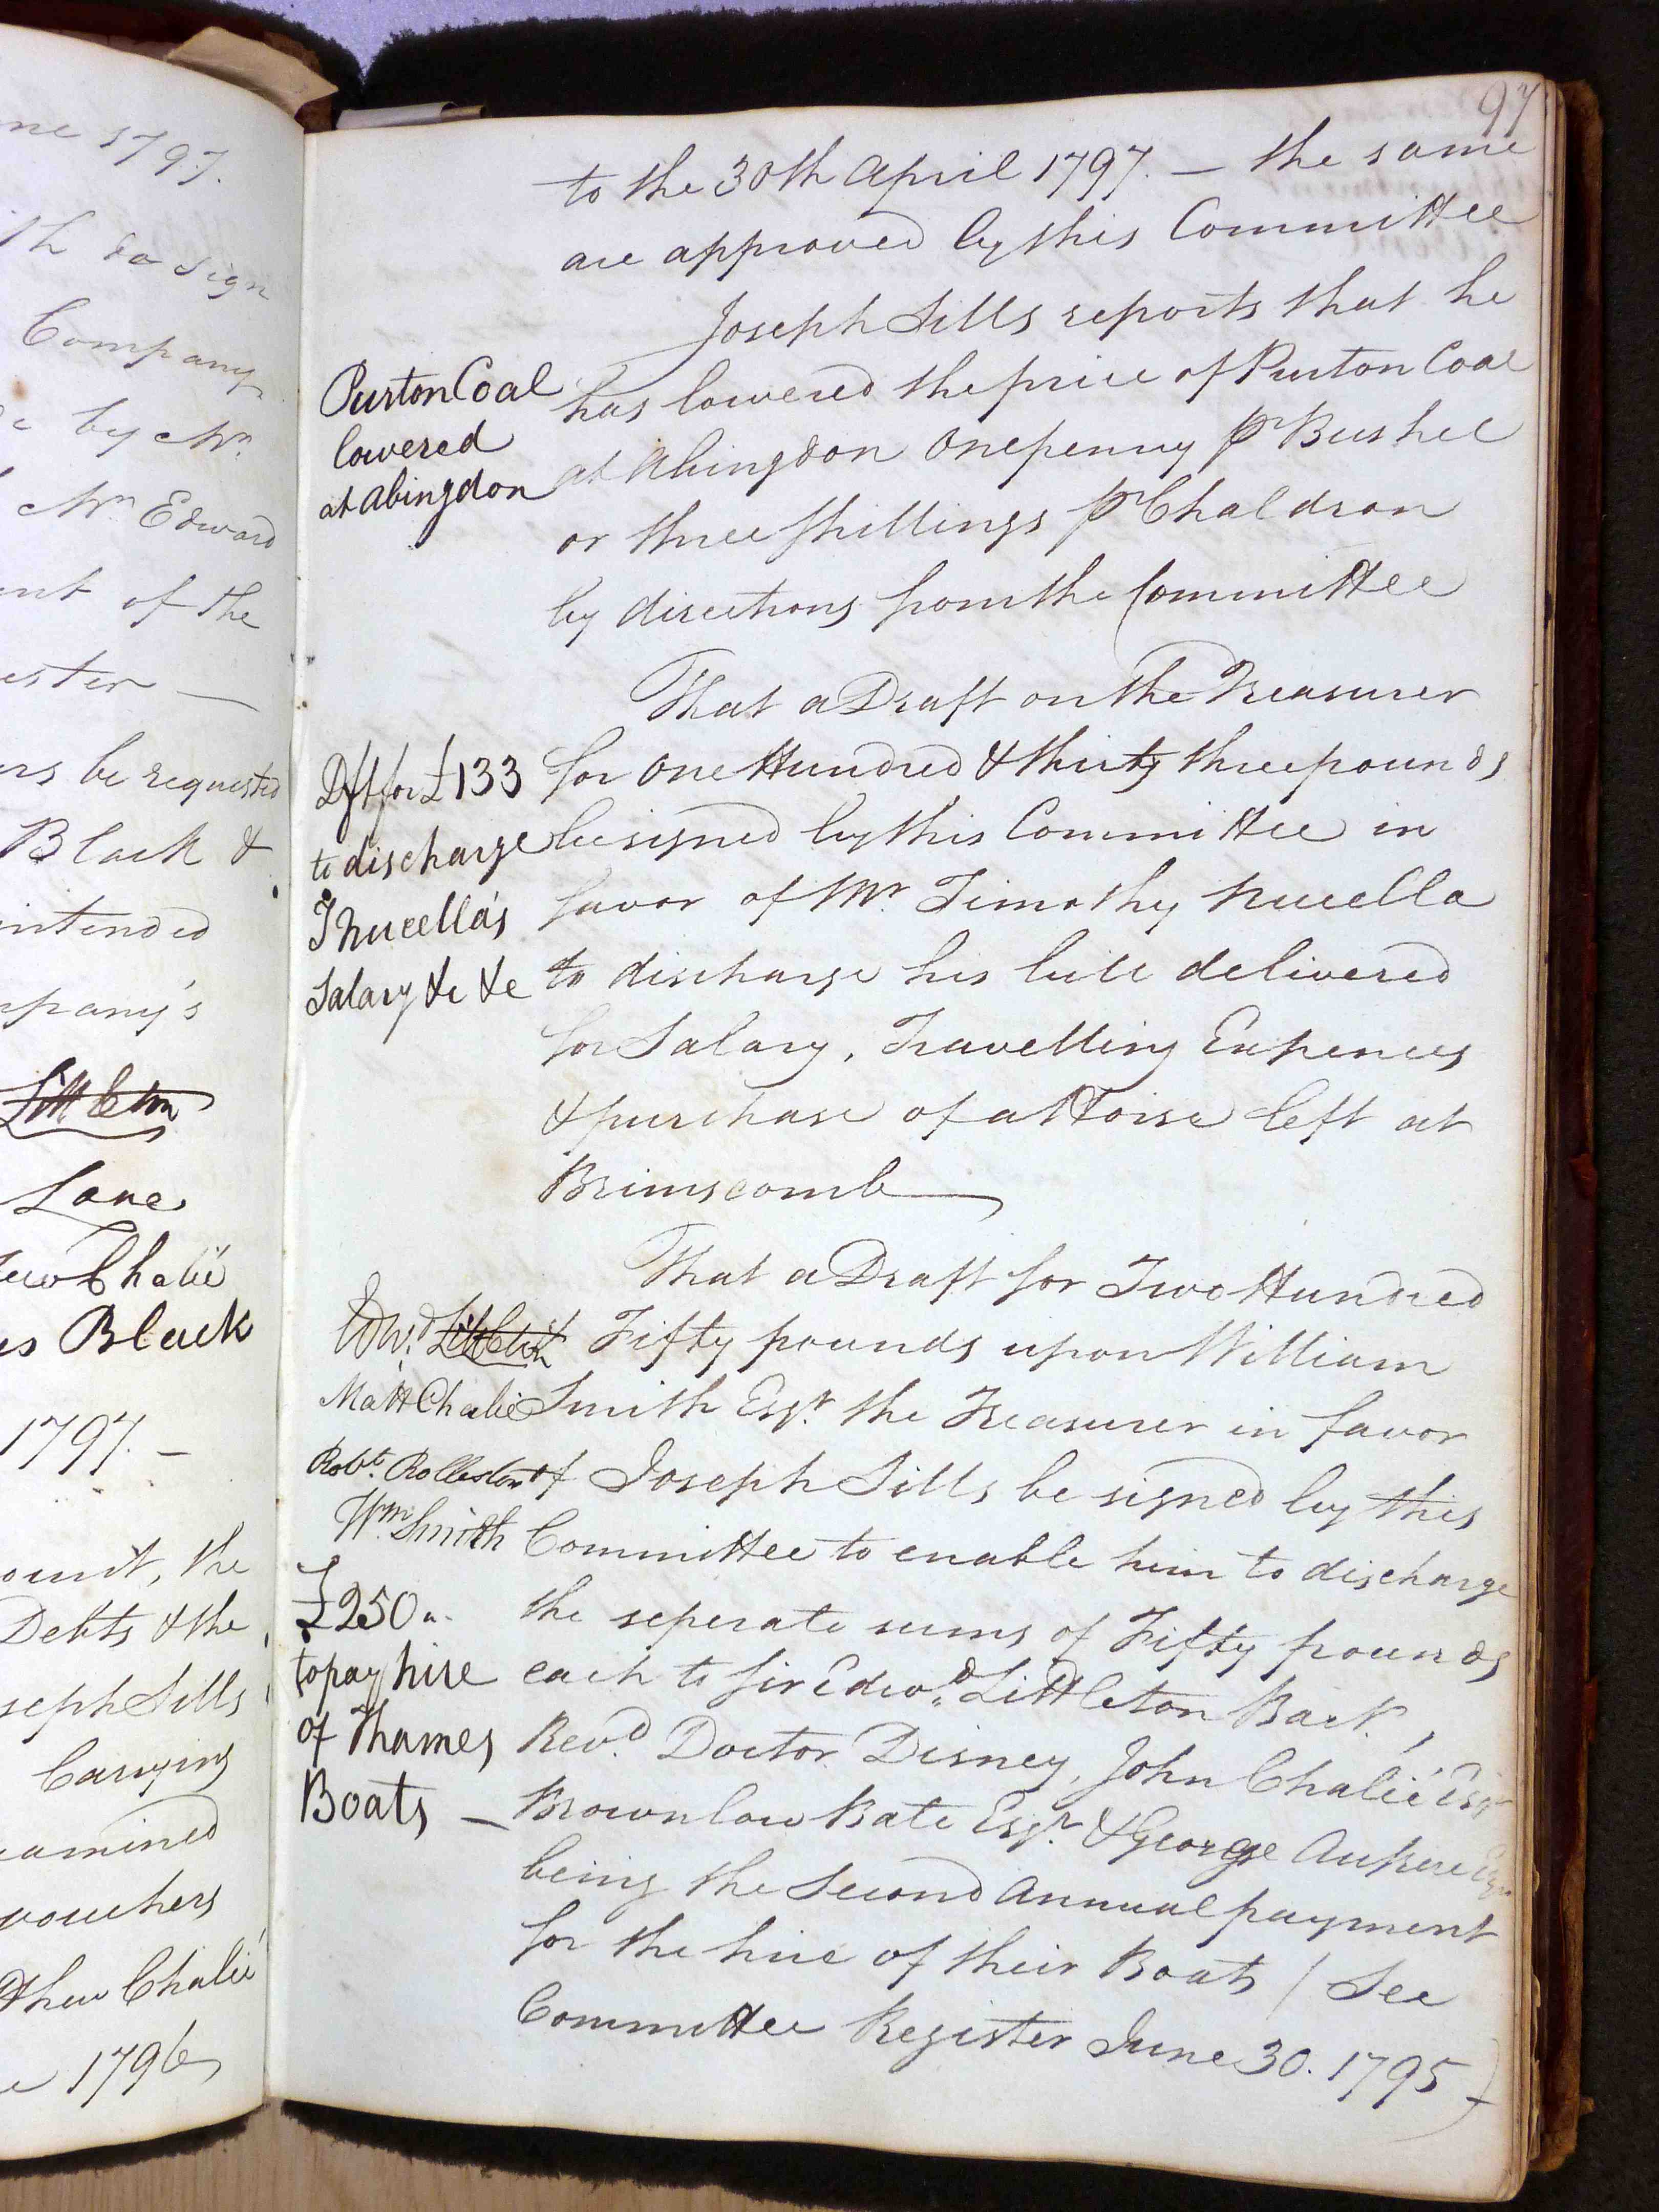 97
to the 30th April 1797. — the same
are approved by this Committee
Joseph Sills reports that he
Purton Coal
lowered
at Abingdon
has lowered the price of Purton Coal
at Abingdon One penny pr Bushel
or three shillings pr Chaldron
by directions from the Committee
That a Draft on the Treasurer
Dft for £133
to discharge
T Nucella's
Salary &c &c
for One Hundred & thirty three pounds
be signed by this Committee in
favor of Mr. Timothy Nucella
to discharge his bill delivered
for Salary, Travelling Expences
& purchase of a Horse left at
Brimscomb
That a Draft for Two Hundred
Edwd. Littleton
Matt Chalié
Robt. Rolleston
Wm. Smith
£250"
to pay hire
of Thames
Boats —
Fifty pounds upon William
Smith Esqr. the Treasurer in favor
of Joseph Sills, be signed by this
Committee to enable him to discharge
the seperate sums of Fifty pounds
each to Sir Edwd. Littleton Bart,
Revd. Doctor Disney, John Chalié Esqr
Brownlow Bate Esqr. & George Aufrere Esqr
being the Second Annual payment
for the hire of their Boats / See
Committee Register June 30. 1795)
ne 1797.
th do sign
Company
by Mr.
Mr. Edward
nt of the
ester —
rs be requested
Black &
intended
mpany's
Littleton
Lane
ew Chalié
es Black
1797. —
ount, the
Debts & the
seph Sills
Carrying
amined
vouchers
thew Chalié
e 1796